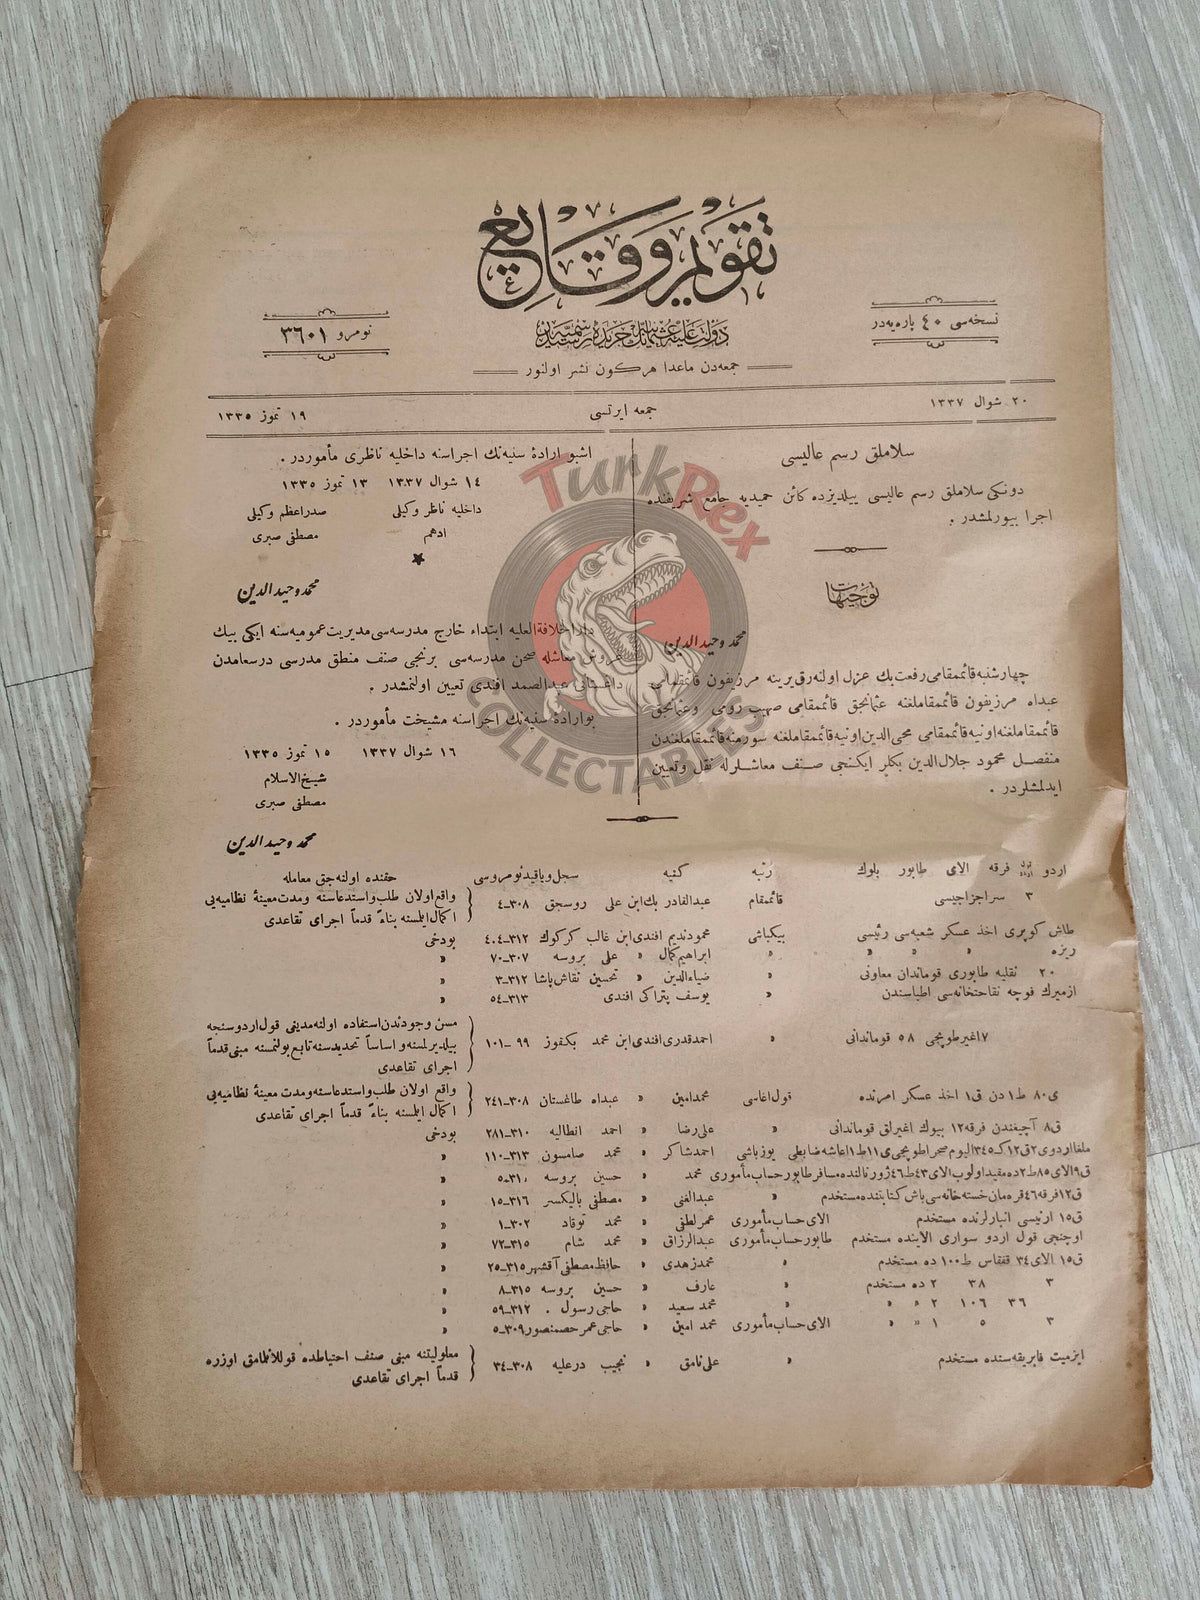 تقویم وقایع
دولت علیه عثمانیه‌نك جریدهٔ رسمیه‌سیدر
نسخه‌سی ٤٠ پاره‌یه‌در
نومرو ٣٦٠١
جمعه‌دن ماعدا هرکون نشر اولنور
٢٠ شوال ١٣٣٧
جمعه ایرتسی
١٩ تموز ١٣٣٥
سلاملق رسم عالیسی
دونکی سلاملق رسم عالیسی ییلدیزده کائن حمیدیه جامع شریفنده
اجرا بیورلمشدر .
توجیهات
محمد وحیدالدین
چهارشنبه قائممقامی رفعت بك عزل اولنه‌رق یرینه مرزیفون قائمقامی
عبداه مرزیفون قائممقاملغنه عثمانجق قائممقامی صهیب رومی وعثمانجق
قائممقاملغنه اونیه قائممقامی محی‌الدین اونیه قائممقاملغنه سورمنه قائممقاملغندن
منفصل محمود جلال‌الدین بكلر ایکنجی صنف معاشلرله نقل وتعیین
ایدلمشلردر .
اشبو ارادهٔ سنیه‌نك اجراسنه داخلیه ناظری مأموردر .
١٤ شوال ١٣٣٧ ١٣ تموز ١٣٣٥
داخلیه ناظر وکیلی صدراعظم وکیلی
ادهم مصطفی صبری
محمد وحیدالدین
دارالخلافة‌العلیه ابتداء خارج مدرسه‌سی مدیریت عمومیه‌سنه ایکی بیك
غروش معاشله صحن مدرسه‌سی برنجی صنف منطق مدرسی درسعامدن
داغستانی عبدالصمد افندی تعیین اولنمشدر .
بو ارادهٔ سنیه‌نك اجراسنه مشیخت مأموردر .
١٦ شوال ١٣٣٧ ١٥ تموز ١٣٣٥
شیخ‌الاسلام
مصطفی صبری
TurkRex
COLLECTABLES
محمد وحیدالدین
اردو قول اردو فرقه الای طابور بلوك رتبه کنیه سجل ویا قید نومروسی حقنده اوله‌جق معامله
٣ سر اجزاجیسی قائممقام عبدالقادر بك ابن علی روسجق ٣٠٨ـ٤ واقع اولان طلب و استدعاسنه ومدت معینهٔ نظامیه‌یی
اکمال ایلمسنه بناءً قدماً اجرای تقاعدی
طاش کوپری اخذ عسکر شعبه‌سی رئیسی بیکباشی محمود ندیم افندی ابن غالب کرکوك ٣١٢ـ٤٠٤ بودخی
ریزه » » » » ابراهیم کمال » علی بروسه ٣٠٧ـ٧٠ »
٢٠ نقلیه طابوری قوماندان معاونی » ضیاءالدین » تحسین نقاش پاشا ٣١٢ـ٣ »
ازمیرك فوچه نقاحتخانه‌سی اطباسندن » یوسف پتراکی افندی ٣١٣ـ٥٤ »
٧ اغیر طوپجی ٥٨ قوماندانی » احمد قدری افندی ابن محمد بکفوز ٩٩ـ١٠١ مسن وجودندن استفاده اولنه‌مدیغی قول اردوسنجه
بیلدیرلمسنه و اساساً تحدید سنه تابع بولنمسنه مبنی قدماً
اجرای تقاعدی
ی ٨٠ ط ١ دن ق ١ اخذ عسکر امرنده قول اغاسی محمد امین » عبداه طاغستان ٣٠٨ـ٢٤١ واقع اولان طلب واستدعاسنه ومدت معینهٔ نظامیه‌یی
اکمال ایلمسنه بناءً قدماً اجرای تقاعدی
ق ٨ آچیغندن فرقه ١٢ بیوك اغیرلق قوماندانی » علی رضا » احمد انطالیه ٣١٠ـ٢٨١ بودخی
یوزباشی احمد شاکر » محمد صامسون ٣١٣ـ١١٠ »
محمد » حسین بروسه ٣١٠ـ٥ »
ق ١٢ فرقه ٤٦ قره‌مان خسته خانه‌سی باش کتابتنده مستخدم » عبدالغنی » مصطفی بالیکسر ٣١٦ـ١٥ »
ق ١٥ ارنیسی انبارلرنده مستخدم الای حساب مأموری عمر لطفی » محمد توقاد ٣٠٢ـ١ »
اوچنجی قول اردو سواری الاینده مستخدم طابور حساب مأموری عبدالرزاق » محمد شام ٣١٥ـ٧٢ »
ق ١٥ الای ٣٤ قفقاس ط ١٠٠ ده مستخدم » محمد زهدی » حافظ مصطفی آقشهر ٣١٥ـ٢٥ »
٣ ٣٨ ٢ ده مستخدم » عارف » حسین بروسه ٣١٥ـ٨ »
٣٦ ١٠٦ ٢ » » » محمد سعید » حاجی رسول . ٣١٢ـ٥٩ »
٣ ٥ ١ » » الای حساب مأموری محمد امین » حاجی عمر حصمنصور ٣٠٩ـ٥ »
ایزمیت فابریقه‌سنده مستخدم » علی نامق » نجیب درعلیه ٣٠٨ـ٣٤ معلولیتنه مبنی صنف احتیاطده قوللانلمامق اوزره
قدماً اجرای تقاعدی